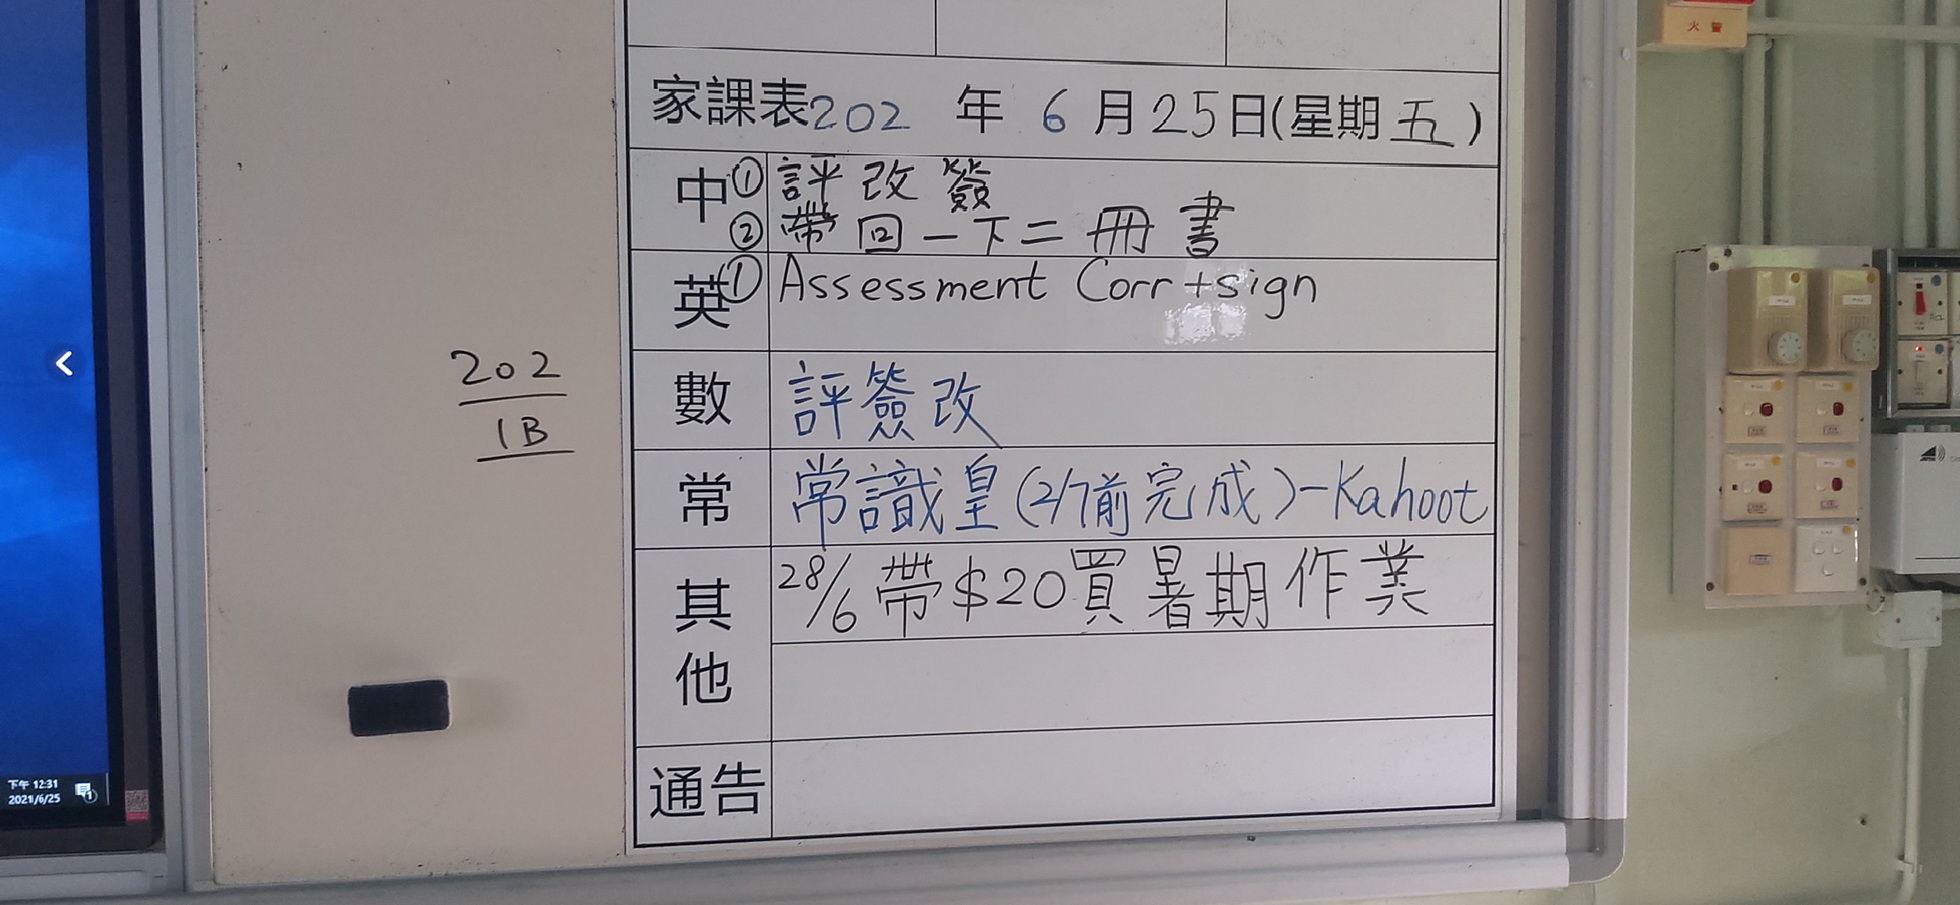 火警
家課表202 年 6 月25日(星期五)
中 ① 評改簽
② 帶回一下二冊書
英 ① Assessment Corr+sign
202
1B
數 評簽改
常 常識皇(2/7前完成)-Kahoot
其他 28/6 帶$20買暑期作業
通告
下午 12:31
2021/6/25